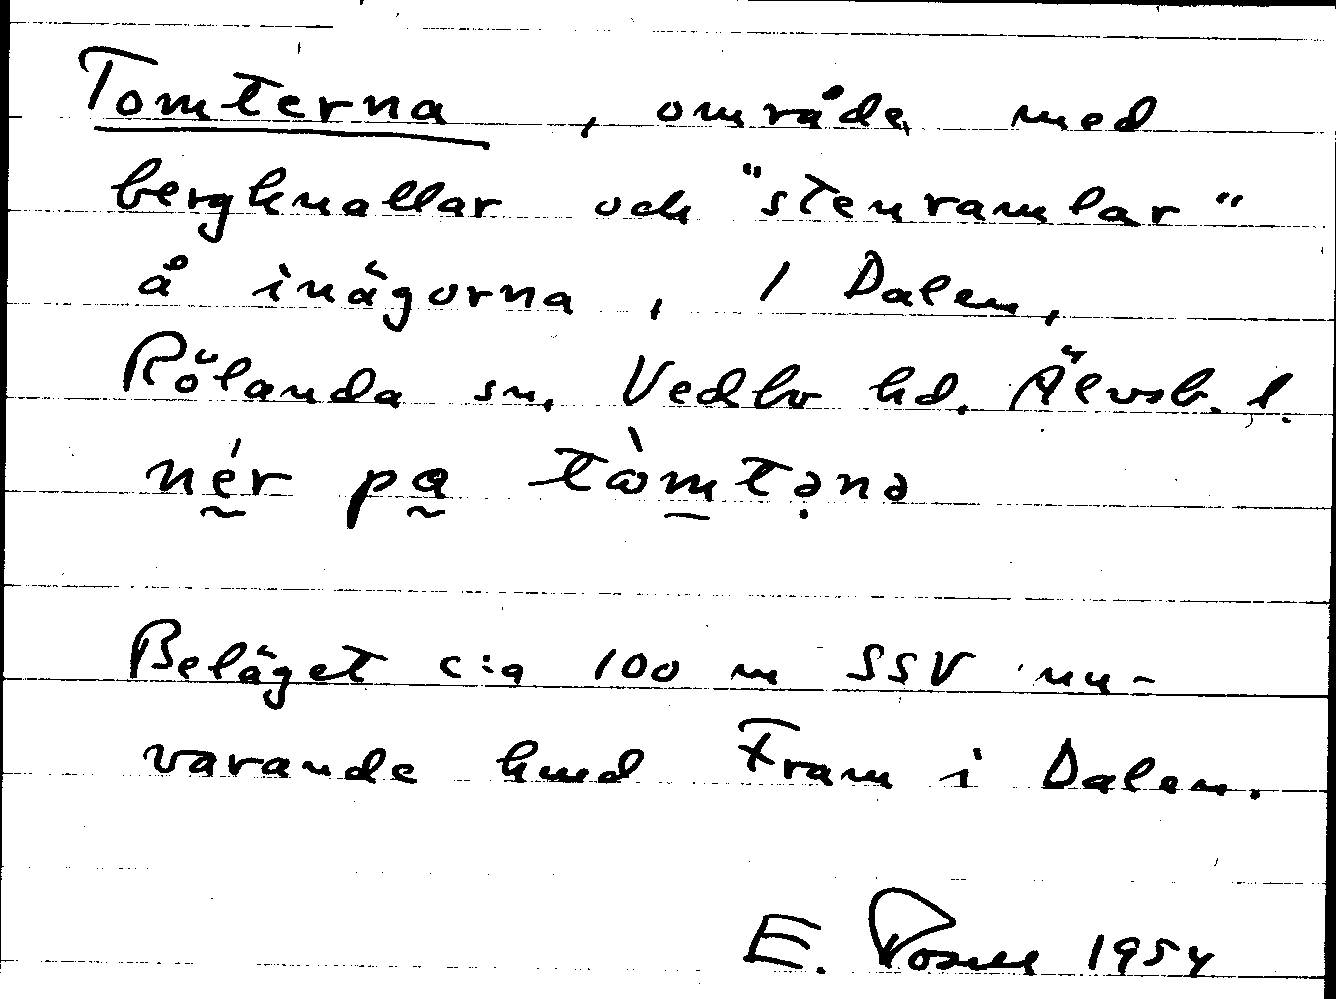 Tomterna, område med
bergknallar och "stenramlar"
å inägorna, 1 Dalen,
Rölanda sn, Vedbo hd. Älvsb. l.
nér pa tòmtənə
Beläget c:a 100 m SSV nu-
varande hmd Fram i Dalen.
E. 1954